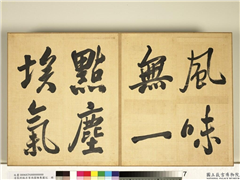 風味
無一
點塵
埃氣
7
國立故宮博物院